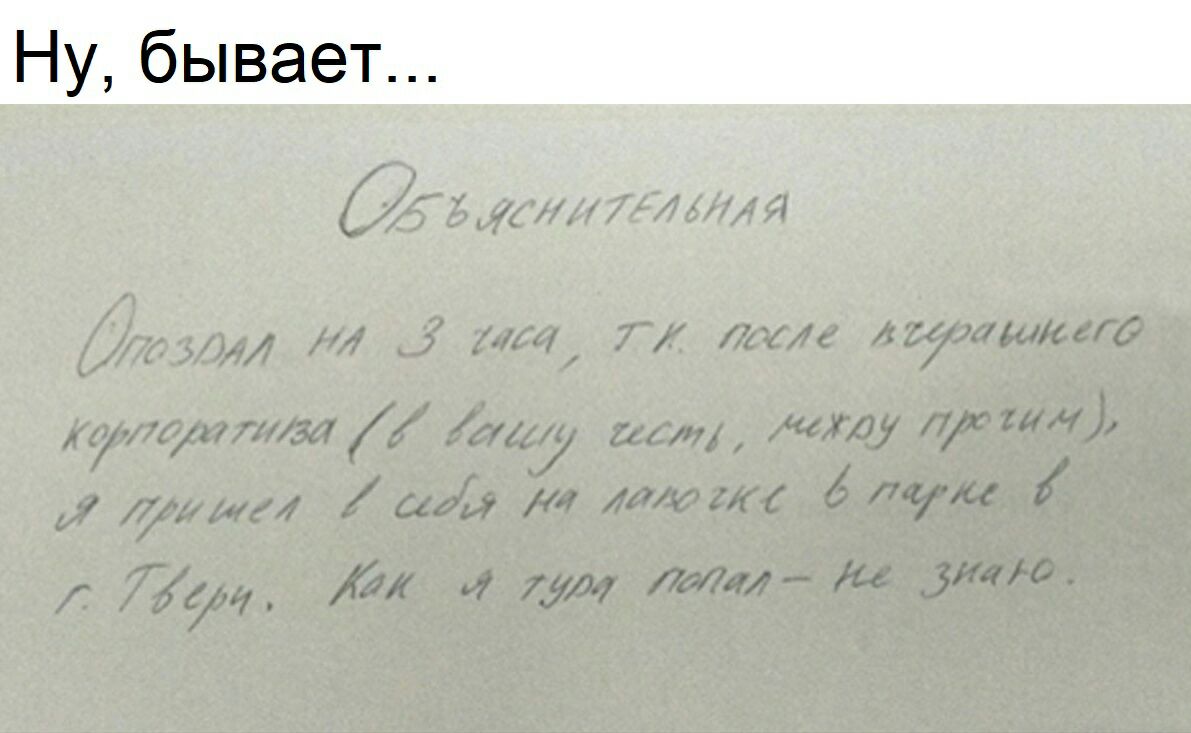 Ну, бывает...
Объяснительная
Опоздал на 3 часа, т.к. после вчерашнего
корпоратива (в вашу честь, между прочим),
я пришел в себя на лавочке в парке в
г. Твери. Как я туда попал – не знаю.